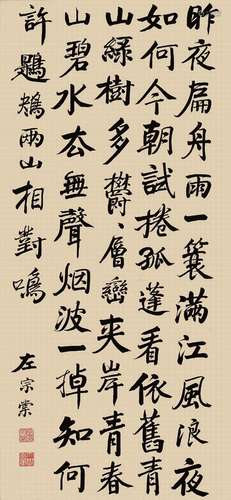 昨夜扁舟雨一簑滿江風浪夜
如何今朝試捲孤蓬看依舊青
山綠樹多欝〻層巒夾岸青春
山碧水去無聲烟波一掉知何
許鷓鴣兩山相對鳴
左宗棠